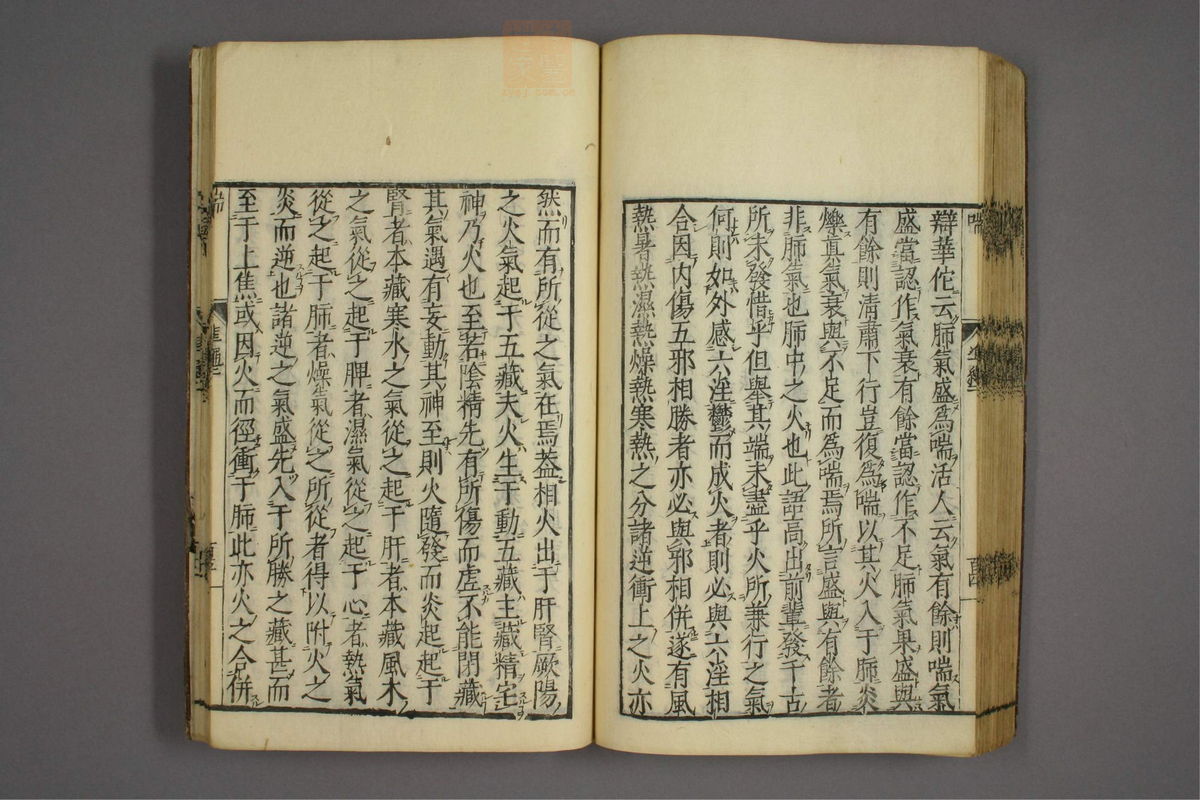 喘
辯華佗云肺氣盛爲喘活人云氣有餘則喘氣
盛當認作氣衰有餘當認作不足肺氣果盛與
有餘則清肅下行豈復爲喘以其火入于肺炎
爍眞氣衰與不足而爲喘焉所言盛與有餘者
非肺氣也肺中之火也此語高出前輩發千古
所未發惜乎但舉其端未盡乎火所兼行之氣
何則如外感六淫鬱而成火者則必與六淫相
合因内傷五邪相勝者亦必與邪相併遂有風
熱暑熱濕熱燥熱寒熱之分諸逆衝上之火亦
然而有所從之氣在焉葢相火出于肝腎厥陽
之火氣起于五藏夫火生于動五藏主藏精宅
神乃火也至若陰精先有所傷而虛不能閉藏
其氣遇有妄動其神至則火隨發而炎起起于
腎者本藏寒水之氣從之起于肝者本藏風木
之氣從之起于脾者濕氣從之起于心者熱氣
從之起于肺者燥氣從之所從者得以附火之
炎而逆也諸逆之氣盛先入于所勝之藏甚而
至于上焦或因火而徑衝于肺此亦火之合併